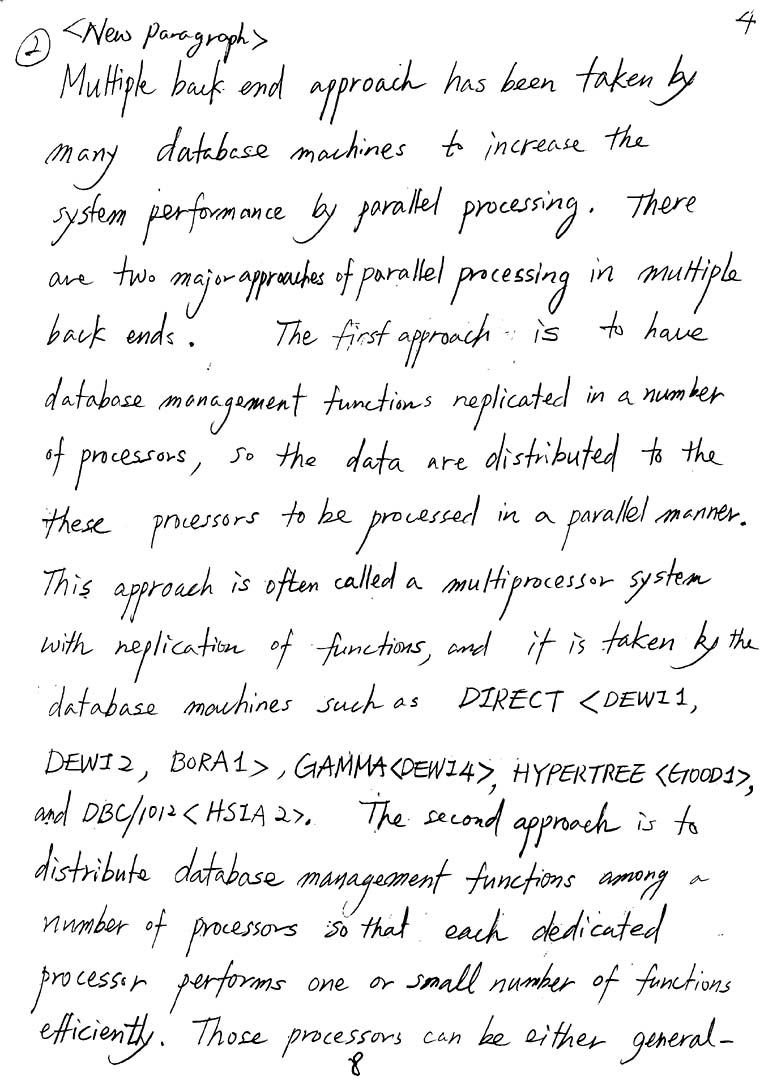 4
② <New Paragraph>
Multiple back end approach has been taken by
many database machines to increase the
system performance by parallel processing. There
are two major approaches of parallel processing in multiple
back ends. The first approach is to have
database management functions replicated in a number
of processors, so the data are distributed to the
these processors to be processed in a parallel manner.
This approach is often called a multiprocessor system
with replication of functions, and it is taken by the
database machines such as DIRECT <DEWI1,
DEWI2, BORA1>, GAMMA<DEWI4>, HYPERTREE <GOOD1>,
and DBC/1012 <HSIA2>. The second approach is to
distribute database management functions among a
number of processors so that each dedicated
processor performs one or small number of functions
efficiently. Those processors can be either general-
8